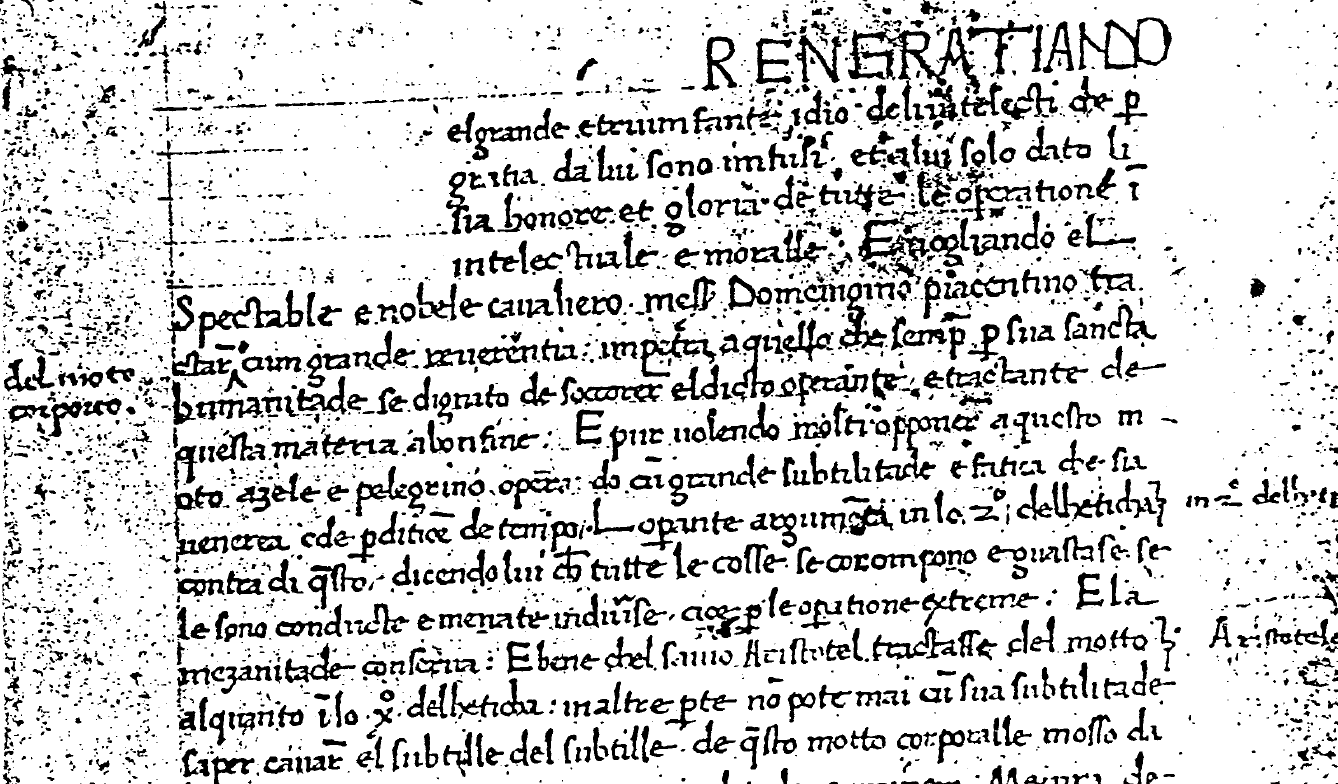 RENGRATIANDO
el grande e triumfante idio del intelecti che p̄
gratia da lui sono imfusi. et a lui solo dato li
sia honore et gloria de tutte le operatione ī
intelectuale e moralle: E vogliando el
Spectable e nobele cavaliero mess Domenigino piacentino tra
ctar̄ cum grande reverentia: impetra a quello che semp̄ p̄ sua sancta
del moto
corporeo.
humanitade se dignato de soccorer el dicto operante, e tractante de
questa materia a bon fine: E pur volendo molti opponer a questo m-
oto azele e pelegrino opēra: do cū grande subtilitade e fatica che sia
venerea e de p̄ditiōe de tempo. L opante argumēta in lo 2º delheticha
in 2º delhet
contra di q̄sto, dicendo lui ch̄ tutte le cosse se corompono e guastase se
le sono conducte e menate indivise cioe p̄ le op̄atione extreme: E la
mezanitade conserva: E bene chel savio Aristotel tractasse del motto
Aristotele
alquanto ī lo xº delheticha: in altre p̄te nō pote mai cū sua subtilitade
saper cavar̄ el subtille del subtille de q̄sto motto corporalle mosso da